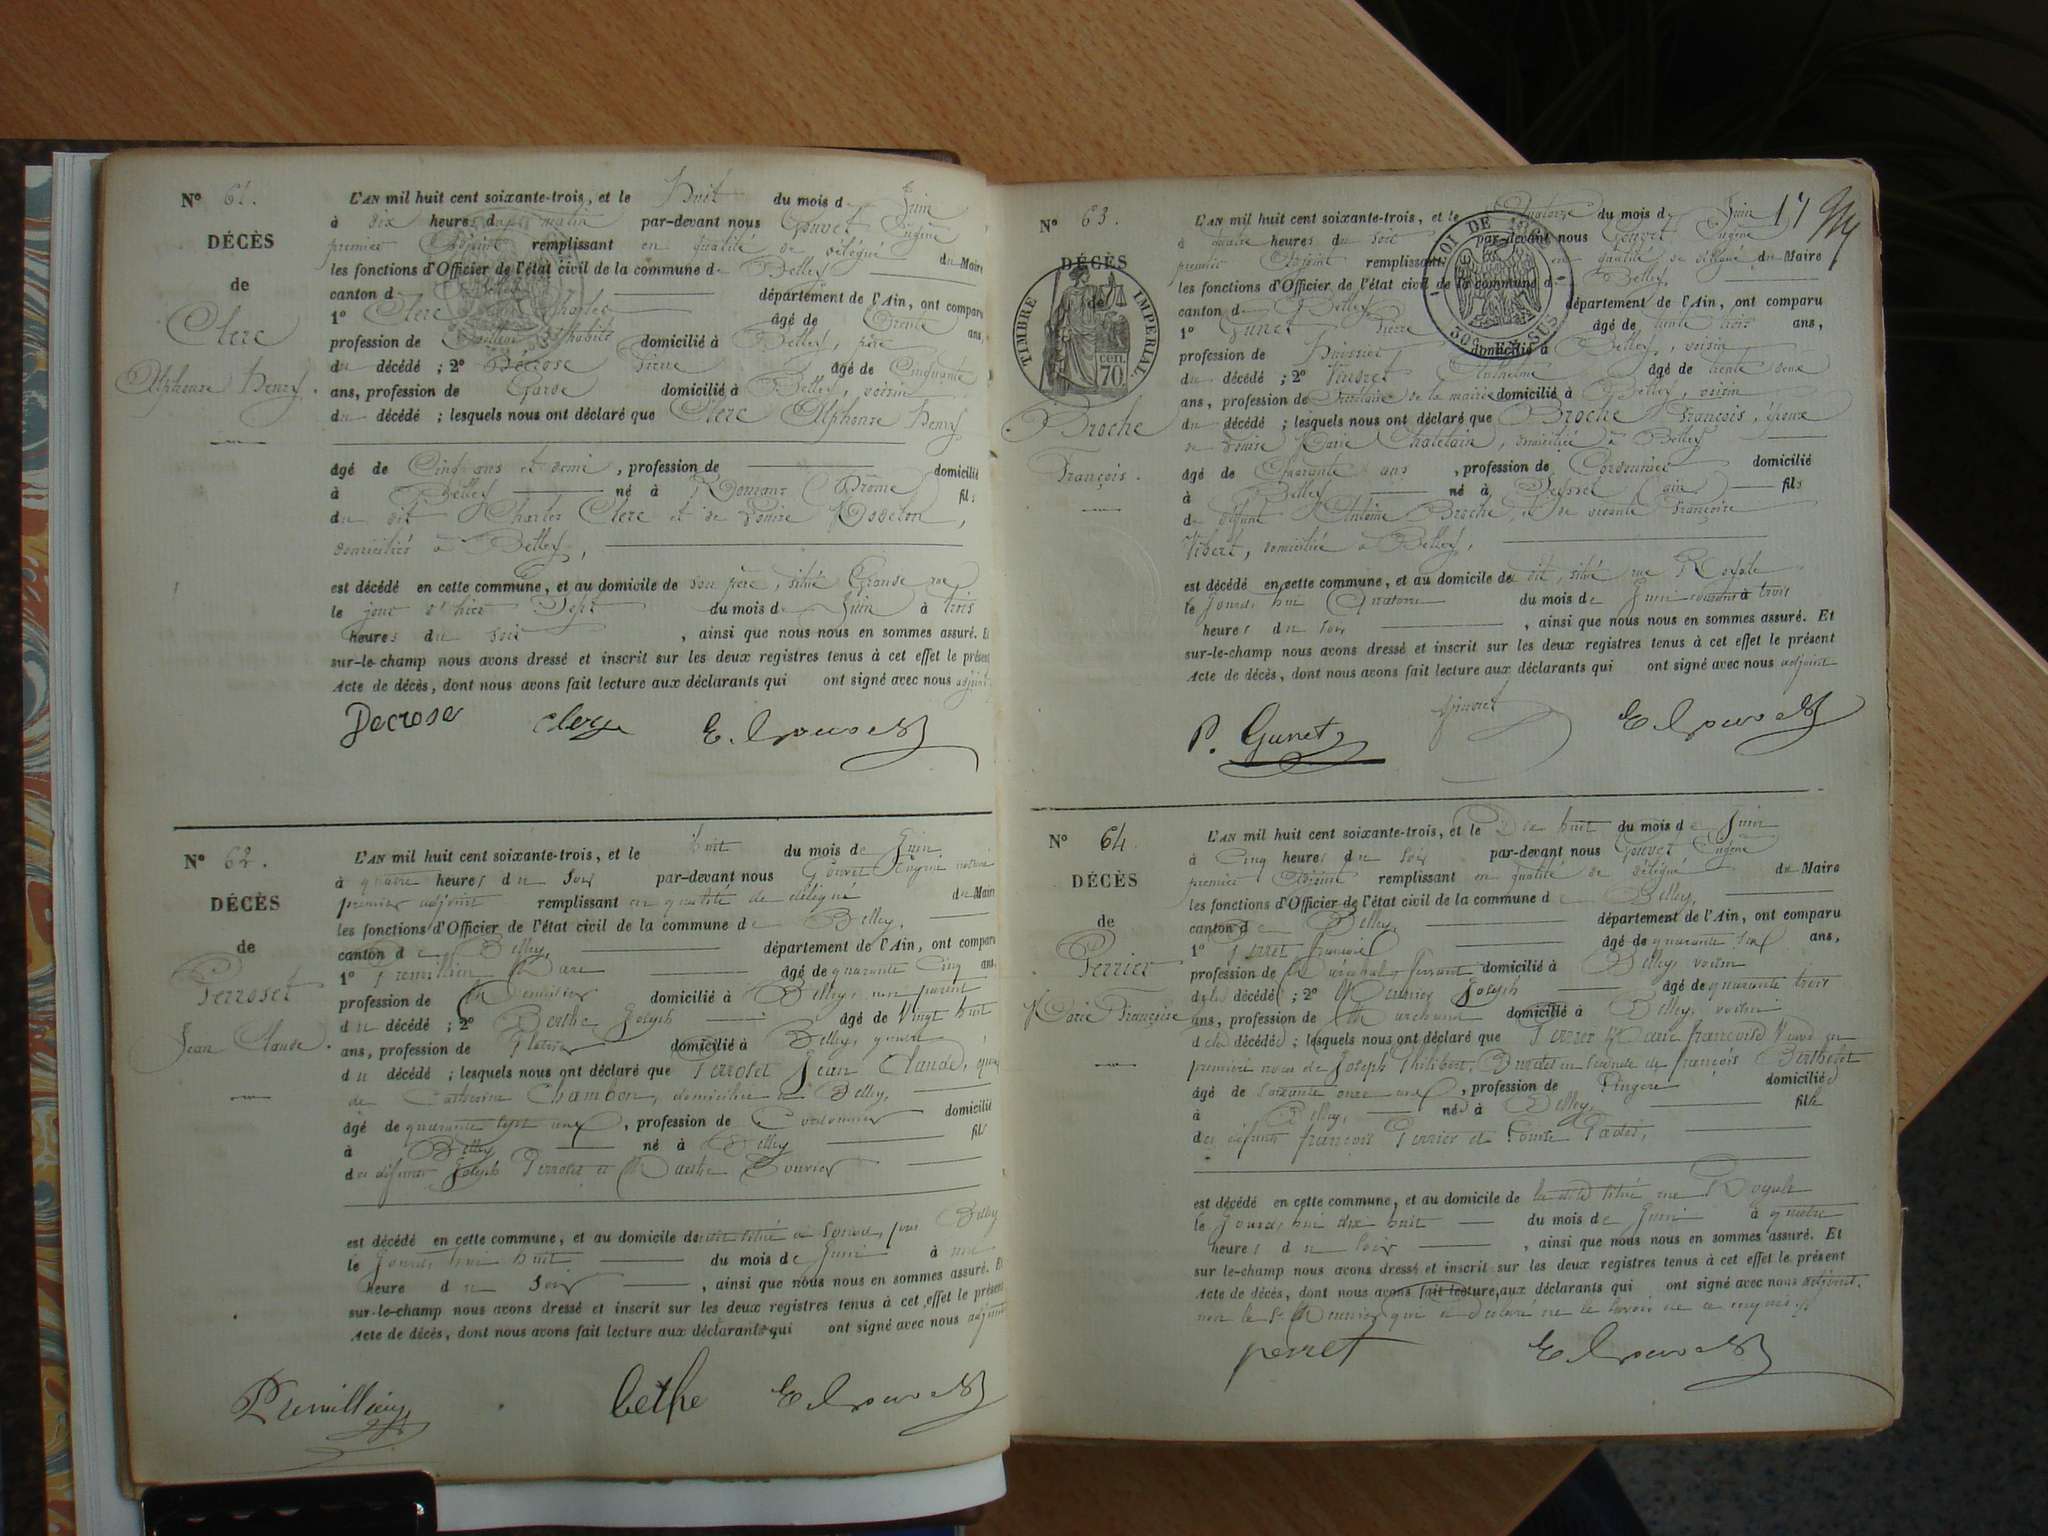 N° 61.
DÉCÈS
de
Clerc
Alphonse Henry.
L'AN mil huit cent soixante-trois, et le Huit du mois de Juin
à dix heures du matin par-devant nous Gouvet Eugène
premier Adjoint remplissant en qualité de délégué du Maire
les fonctions d'Officier de l'état civil de la commune de Belley
canton de Belley département de l'Ain, ont comparu
1° Clerc Charles âgé de Trente ans,
profession de d'habits domicilié à Belley, père
du décédé ; 2° Décrose Pierre âgé de Cinquante
ans, profession de Garde domicilié à Belley, voisin
du décédé ; lesquels nous ont déclaré que Clerc Alphonse Henry
âgé de Cinq ans et demi, profession de domicilié
à Belley né à Romans (Drôme) fils
du dit Charles Clerc et de Louise Rodeton,
domiciliés à Belley,
est décédé en cette commune, et au domicile de son père, situé Grande rue
le jour d'hier Sept du mois de Juin à trois
heures du soir, ainsi que nous nous en sommes assuré. Et
sur-le-champ nous avons dressé et inscrit sur les deux registres tenus à cet effet le présent
Acte de décès, dont nous avons fait lecture aux déclarants qui ont signé avec nous adjoint.
Decrose Clerc E. Gouvet
N° 62.
DÉCÈS
de
Perroset
Jean Claude.
L'AN mil huit cent soixante-trois, et le huit du mois de Juin
à quatre heures du soir par-devant nous Gouvet Eugène notaire
premier adjoint remplissant en qualité de délégué du Maire
les fonctions d'Officier de l'état civil de la commune de Belley,
canton de Belley, département de l'Ain, ont comparu
1° Premillieu Marc âgé de quarante cinq ans,
profession de Menuisier domicilié à Belley, non parent
du décédé ; 2° Berthe Joseph âgé de vingt huit
ans, profession de Platrier domicilié à Belley, gendre
du décédé ; lesquels nous ont déclaré que Perroset Jean Claude, époux
de Catherine Chambon, domiciliée à Belley,
âgé de quarante sept ans, profession de Cordonnier domicilié
à Belley né à Belley fils
des défunts Joseph Perroset et Marthe Bouvier
est décédé en cette commune, et au domicile de situé à Belley
le Jourd'hui huit du mois de Juin à une
heure du soir, ainsi que nous nous en sommes assuré. Et
sur-le-champ nous avons dressé et inscrit sur les deux registres tenus à cet effet le présent
Acte de décès, dont nous avons fait lecture aux déclarants qui ont signé avec nous adjoint
Premillieu bethe E Gouvet
17
N° 63.
DÉCÈS
de
TIMBRE IMPERIAL
cen. 70.
Broche
François.
L'AN mil huit cent soixante-trois, et le Quatorze du mois de Juin
à quatre heures du soir par-devant nous Gouvet Eugène
premier Adjoint remplissant en qualité de délégué du Maire
les fonctions d'Officier de l'état civil de la commune de Belley,
canton de Belley département de l'Ain, ont comparu
1° Gunet Pierre âgé de trente trois ans,
profession de Huissier domicilié à Belley, voisin
du décédé ; 2° Anthelme âgé de trente deux
ans, profession de Secrétaire de la mairie domicilié à Belley, voisin
du décédé ; lesquels nous ont déclaré que Broche François, époux
de Louise Marie Chatelain, domiciliée à Belley
âgé de Quarante ans, profession de Cordonnier domicilié
à Belley né à Seyssel (ain) fils
de défunt Antoine Broche, et de vivante Françoise
Vibert, domiciliée à Belley,
est décédé en cette commune, et au domicile du dit, situé rue Royale
le Jourd'hui Quatorze du mois de Juin courant à trois
heures du soir, ainsi que nous nous en sommes assuré. Et
sur-le-champ nous avons dressé et inscrit sur les deux registres tenus à cet effet le présent
Acte de décès, dont nous avons fait lecture aux déclarants qui ont signé avec nous adjoint
P. Gunet E Gouvet
N° 64.
DÉCÈS
de
Perrier
Marie Françoise
L'AN mil huit cent soixante-trois, et le Dix huit du mois de Juin
à Cinq heures du soir par-devant nous Gouvet Eugène
premier Adjoint remplissant en qualité de délégué du Maire
les fonctions d'Officier de l'état civil de la commune de Belley,
canton de Belley, département de l'Ain, ont comparu
1° Perret François âgé de quarante six ans,
profession de Maréchal ferrant domicilié à Belley, voisin
de la décédée ; 2° Meunier Joseph âgé de quarante trois
ans, profession de Marchand domicilié à Belley, voisin
de la décédée ; lesquels nous ont déclaré que Perrier Marie françoise Veuve en
première noces de Joseph Philibert, en seconde de françois Berthelet
âgé de soixante onze ans, profession de Lingère domiciliée
à Belley, née à Belley, fille
des défunts françois Perrier et Louise
est décédé en cette commune, et au domicile de la dite situé rue Royale
le Jourd'hui dix huit du mois de Juin à quatre
heures du soir, ainsi que nous nous en sommes assuré. Et
sur le-champ nous avons dressé et inscrit sur les deux registres tenus à cet effet le présent
Acte de décès, dont nous avons fait lecture aux déclarants qui ont signé avec nous adjoint.
non le Sr Meunier qui a déclaré ne le savoir de ce enquis.
perret E Gouvet